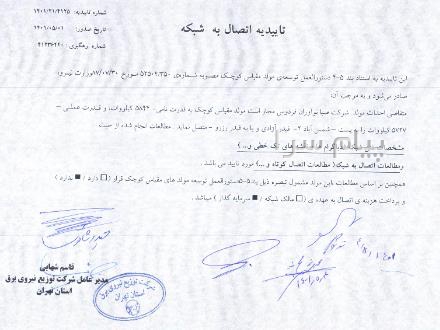 تاییدیه اتصال به شبکه
شماره تاییدیه: ۱۴۰۱/۲۱/۴۱۲۵
تاریخ صدور: ۱۴۰۱/۰۵/۰۱
شماره رهگیری: ۴۱۲۳۶۲۴۰
این تاییدیه به استناد بند ۵-۴ دستورالعمل توسعه‌ی مولد مقیاس کوچک مصوبه شماره‌ی ۵۲۵۰۴/۳۵۰ مورخ ۱۷/۰۷/۳۰ وزارت نیرو،
صادر می‌شود و به موجب آن،
متقاضی احداث مولد صبا نوآوران فردوس مجاز است مولد مقیاس کوچک به قدرت نامی ۵۸۴۴ کیلووات، و قدرت عملی
۵۷۲۷ کیلووات را به پست - شمس آباد ۲ - فیدر آزادی و یا به فیدر رزرو - متصل نماید. مطالعات انجام شده از حیث
مشخصات فنی شبکه (دیاگرام تک خطی و...)
ومطالعات اتصال به شبکه (مطالعات اتصال کوتاه و ...) مورد تایید می باشد.
همچنین بر اساس مطالعات این مولد مشمول تبصره ذیل بند ۵-۵ دستورالعمل توسعه مولد های مقیاس کوچک قرار (□ دارد / ■ ندارد)
و پرداخت هزینه ی اتصال به عهده ی (□ مالک شبکه / ■ سرمایه گذار) میباشد.
پیام سرو
قاسم شهابی
مدیر عامل شرکت توزیع نیروی برق
استان تهران
شرکت توزیع نیروی برق
استان تهران